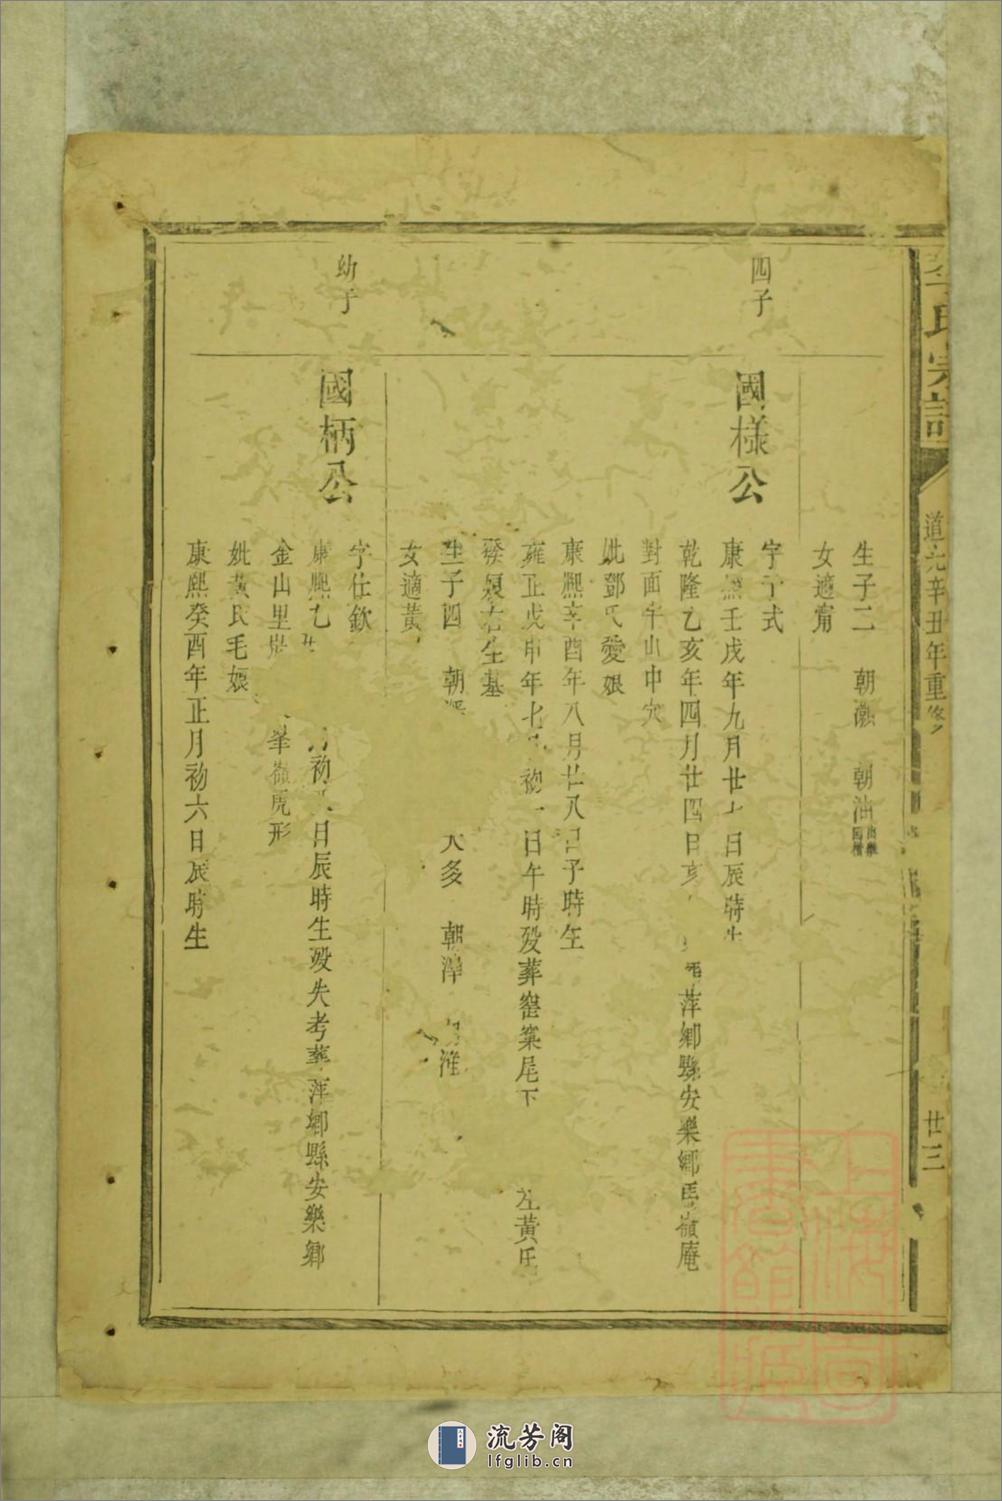 李氏宗譜
道光辛丑年重修
廿三
生子二 朝 朝油
女適甯
四子
國樣公
字 式
康熙壬戌年九月廿七日辰時生
乾隆乙亥年四月廿四日亥 萍鄉縣安樂鄉馬嶺庵
對面午山中穴
妣鄧氏愛娘
康熙辛酉年八月廿八日子時生
雍正戊申年七月初一日午時歿葬窰窠尾下 左黃氏
發 右生基
生子四 朝 多 朝
女適黃
幼子
國柄公
字仕欽
康熙乙 月初 日辰時生歿失考葬萍鄉縣安樂鄉
金山里 嶺虎形
妣黃氏毛娘
康熙癸酉年正月初六日辰時生
上海圖書館藏
流芳阁
lfglib.cn